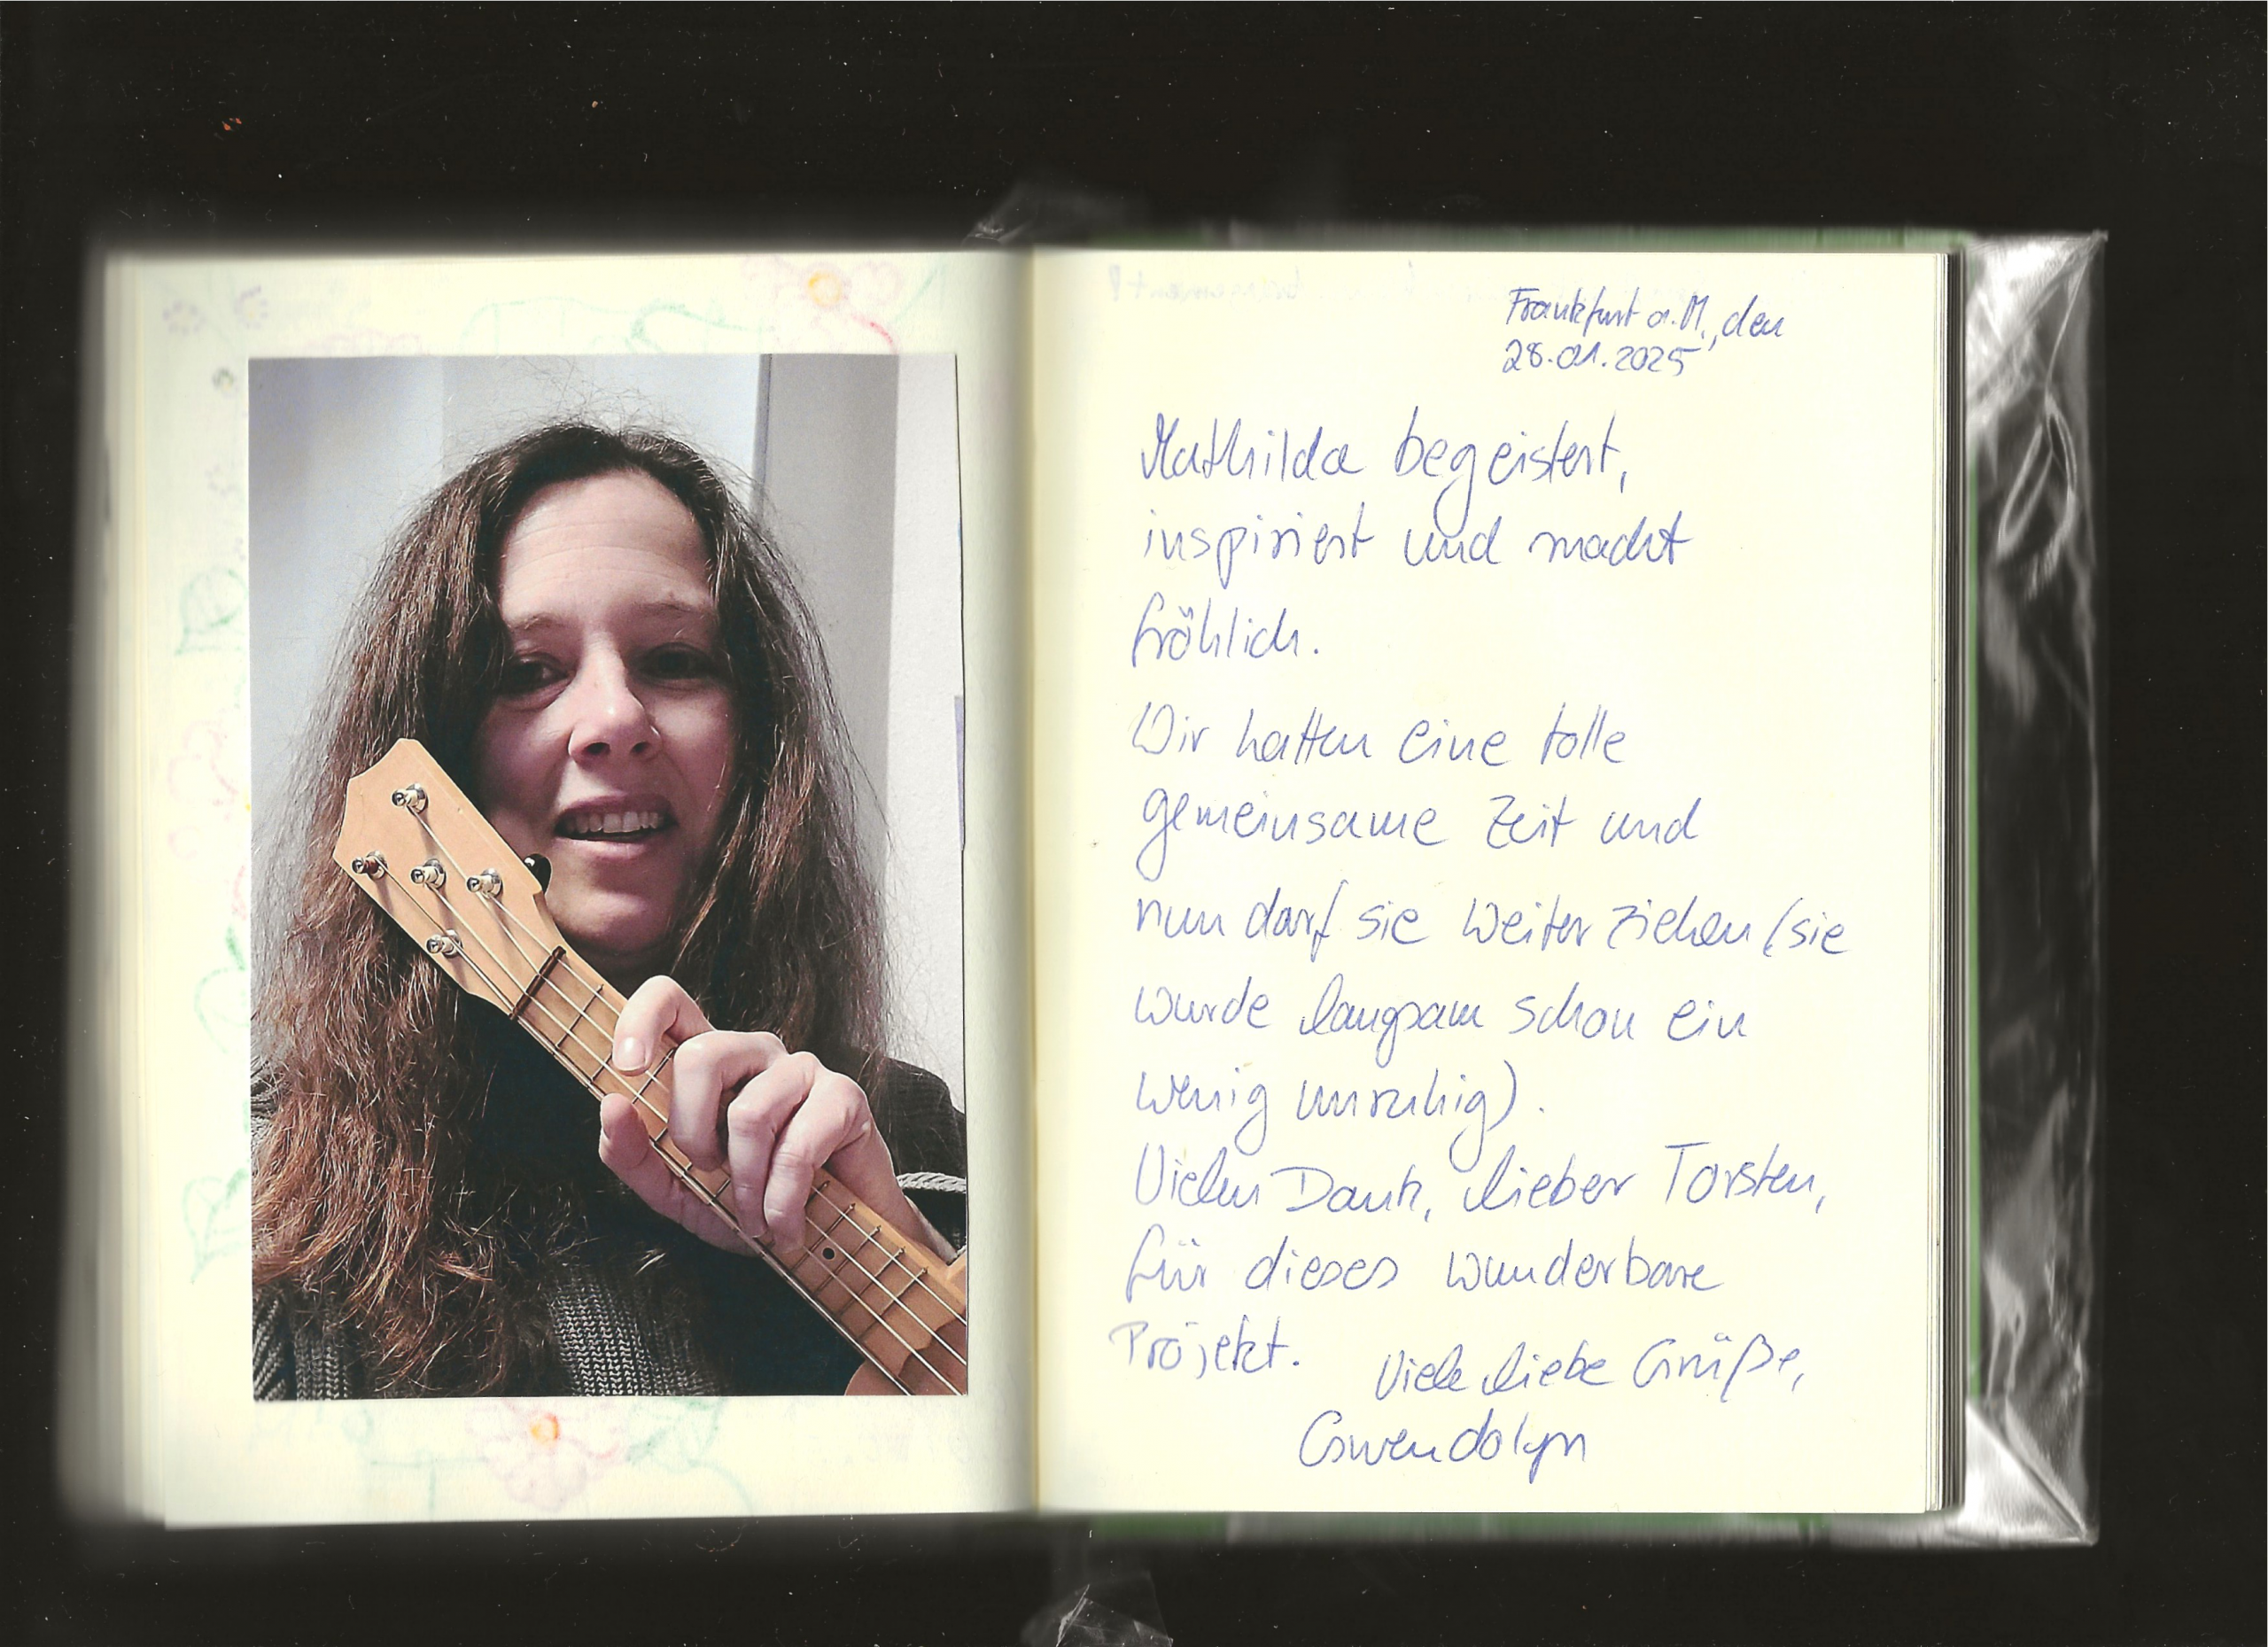 Frankfurt a.M., den
28.01.2025
Mathilda begeistert,
inspiriert und macht
fröhlich.
Wir hatten eine tolle
gemeinsame Zeit und
nun darf sie weiter ziehen (sie
wurde langsam schon ein
wenig unruhig).
Vielen Dank, lieber Torsten,
für dieses wunderbare
Projekt.
Viele liebe Grüße,
Gwendolyn